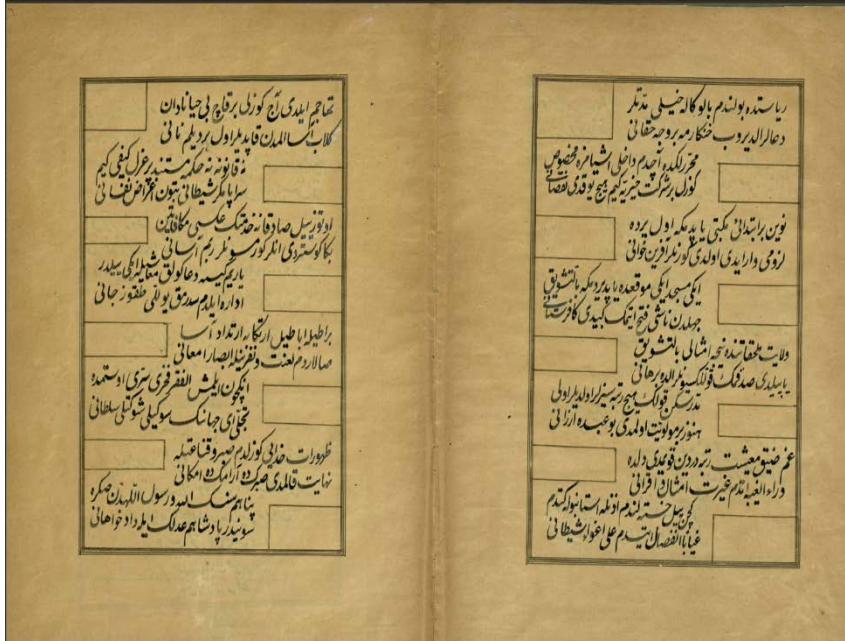 ریاستده بولندم بالوکاله خیلی مدتلر
دعالر الدیروب خنکارمه بر وجه حقانی
محررلکده آچدم داخلی اشیامزه مخصوص
کوزل بر شرکت خیریه کیم هیچ یوقدی نقصانی
نوین بر ابتدائی مکتبی یاپدمکه اول یرده
لزومی دار ایدی اولدی کورنلر آفرین خوانی
ایکی مسجد ایکی موقعده یاپدیردمکه بالتشویق
جهلدن ناشی فتح ایتمک کبیدی کافرستانی
ولایت ملحقاتنده نیجه امثالی بالتشویق
یاپیلدی صدقمک قوللاکیتونلر الده برهانی
هیچ رتبه سیزلر اولدیلر اولی
هنوز بر مولویت اولمدی بو عبده ارزانی
غم ضیق معیشت رتبه دردن قویمدی دلده
وراء الغبه اتدم غیرت امثال و اقرانی
کچن ییل خسته لندم اذنله استانبوله کتدم
غیاباً انفصال ایتدم علی اغواء شیطانی
تهاجم ایلدی آج کوزلی بر قاچ بی حیا نادان
کلاب آسا المدن قاپدیلر اول بر دیلم نانی
نه قانونه نه حکمه مستند بر عزل کیفی کیم
سراپا مکر شیطانی بتون اغراض نفسانی
اوتوز ییل صادقانه خدمتک عکسی مکافاتین
بکا کوستردی انلر کورمسونلر ربم آسانی
یاریم کیسه دعاکولق معاشیله ایکی ییلدر
اداره ایلدم سدرمق یوللی طقوز جانی
براطیله اباطیل ارتکابه ارتداد آسا
صالاردم لعنت و نفرینله ابصار امعانی
ایچون ایمش الفقر فخری سری اوستمده
تجلی ای جهانک سوکیلی شوکتلی سلطانی
ظهورات خدایی کوزلدم صبر و قناعتله
نهایت قالمدی صبرکده آرامکده امکانی
پناهم سنسک الله و رسول اللهدن صکره
سونیدر پادشاهم عدلک ایله دادخواهانی